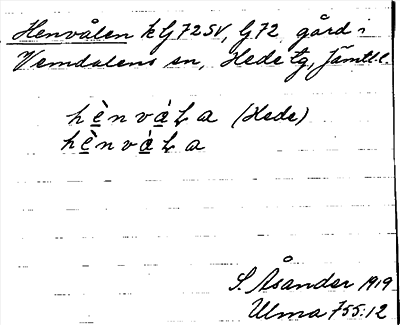 Henvålen k G 72 SV, G 72 gård i
Vemdalens sn, Hede tg, Jämtl. l.
hènvàɫa (Hede)
hènvàɫa
S. Åsander 1919
Ulma 755:12